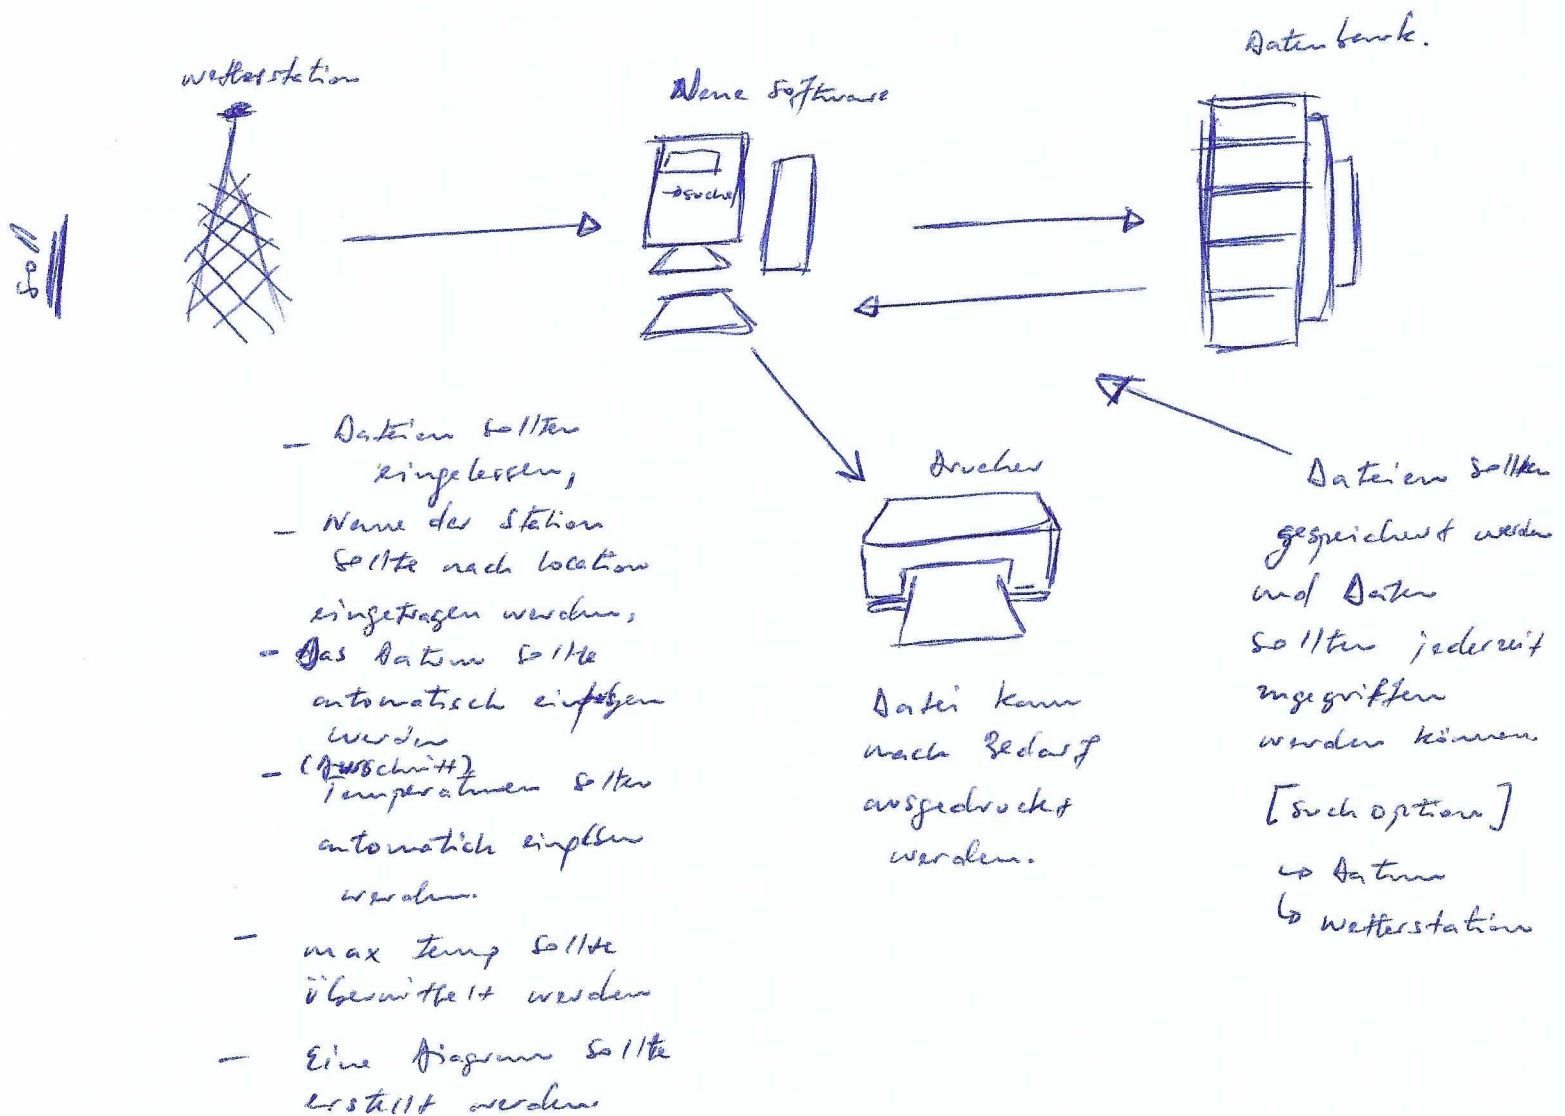 Soll
Wetterstation
Neue Software
Datenbank.
→ suche
- Dateien sollten
eingelessen,
- Name der Station
sollte nach location
eingetragen werden,
- Das Datum sollte
automatisch
werden
- (Ausschnitt)
Temperaturen sollten
automatich
werden.
- max temp sollte
übermittelt werden
- Eine Diagram sollte
erstellt werden
Drucker
Datei kann
nach Bedarf
ausgedruckt
werden.
Dateien sollten
gespeichert werden
und Daten
sollten jederzeit
zugegriffen
werden können.
[Such option]
↳ Datum
↳ Wetterstation